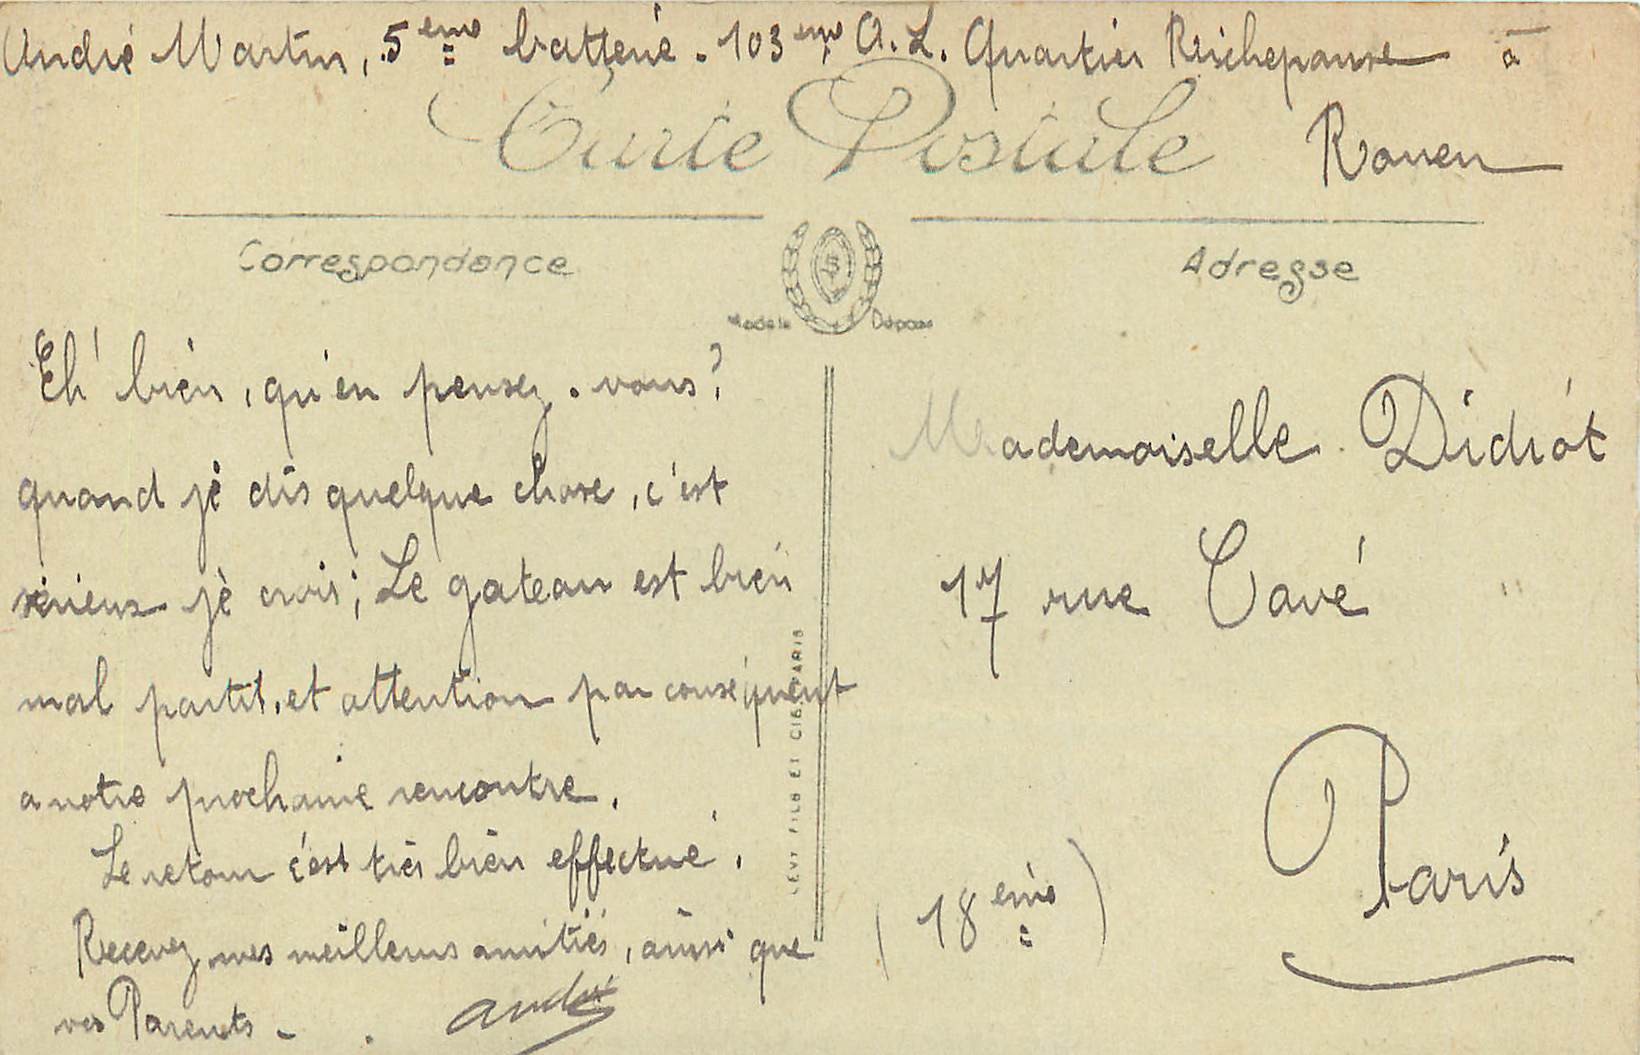 André Martin, 5ème batterie. 103ème A.L. Quartier Richepanse à
Rouen
Carte Postale
Correspondance
Adresse
Modèle Déposé
Eh' bien, qu'en pensez-vous?
quand je dis quelque chose, c'est
sérieux je crois; Le gateau est bien
mal partit, et attention par conséquent
a notre prochaine rencontre.
Le retour c'est très bien effectué.
Recevez mes meilleurs amitiés, ainsi que
vos Parents -
André
LEVY FILS ET CIE PARIS
Mademoiselle Didiot
17 rue Cavé
Paris
(18ème)